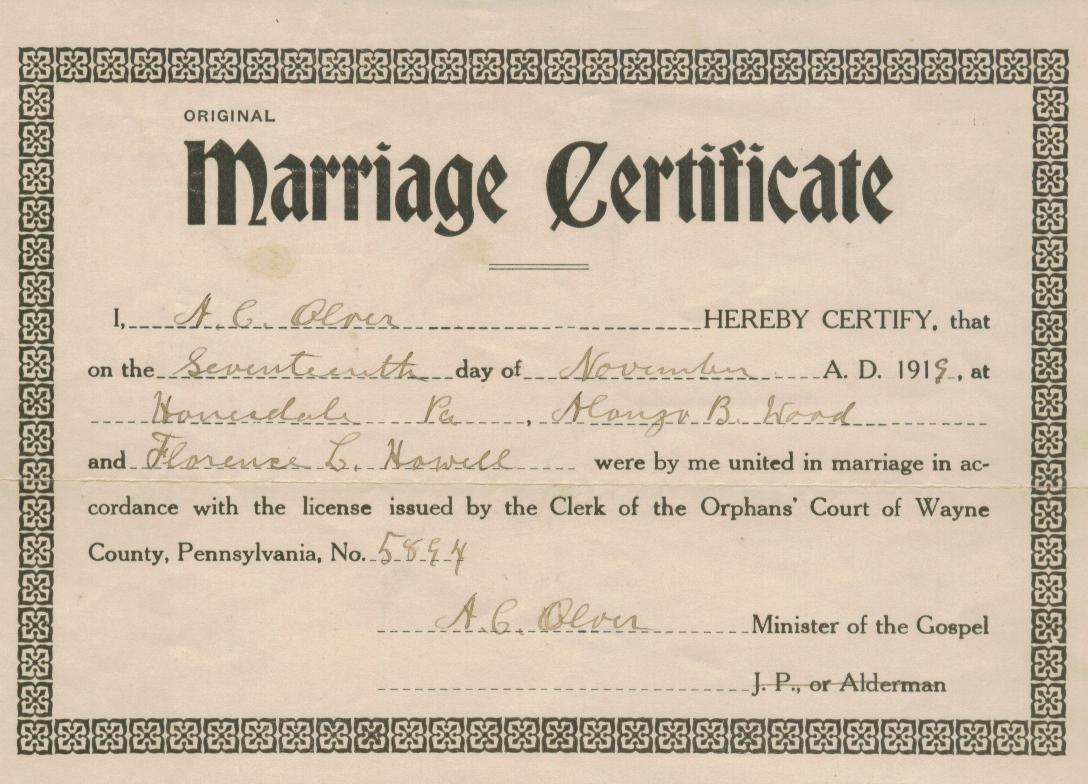 ORIGINAL
Marriage Certificate
I, A. C. Olver HEREBY CERTIFY, that
on the Seventeenth day of November A. D. 1919, at
Honesdale Pa, Alonzo B. Wood
and Florence L. Howell were by me united in marriage in ac-
cordance with the license issued by the Clerk of the Orphans' Court of Wayne
County, Pennsylvania, No. 5894
A. C. Olver Minister of the Gospel
J. P., or Alderman